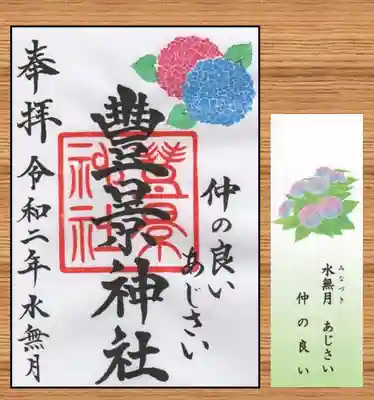 仲の良い
あじさい
豊景神社
豊景
神社
奉拝 令和二年 水無月
みなづき
水無月 あじさい
仲の良い